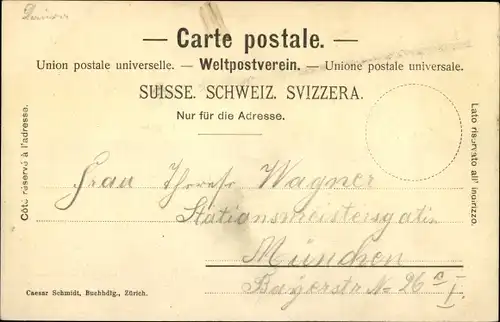 — Carte postale. —
Union postale universelle. — Weltpostverein. — Unione postale universale.
SUISSE. SCHWEIZ. SVIZZERA.
Nur für die Adresse.
Côté réservé à l'adresse.
Lato riservato all' indirizzo.
Frau Wagner
Stationsmeistersgattin
München
Bayerstr No 26 a/I.
Caesar Schmidt, Buchhdlg., Zürich.